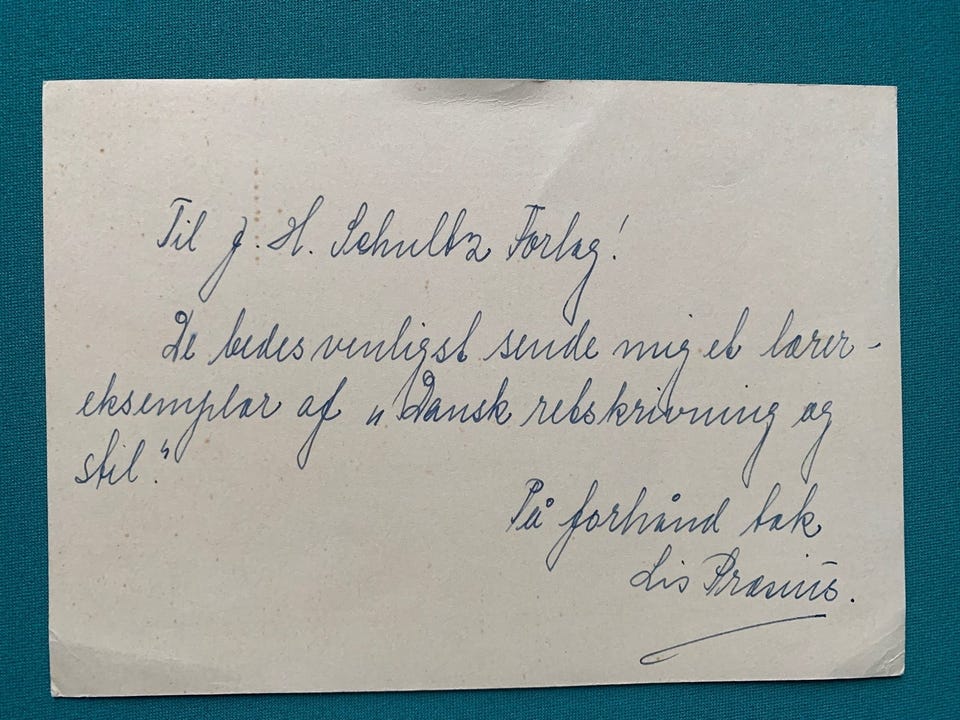 Til J. H. Schultz Forlag!
De bedes venligst sende mig et lærer-
eksemplar af „Dansk retskrivning og
stil“.
På forhånd tak
Lis